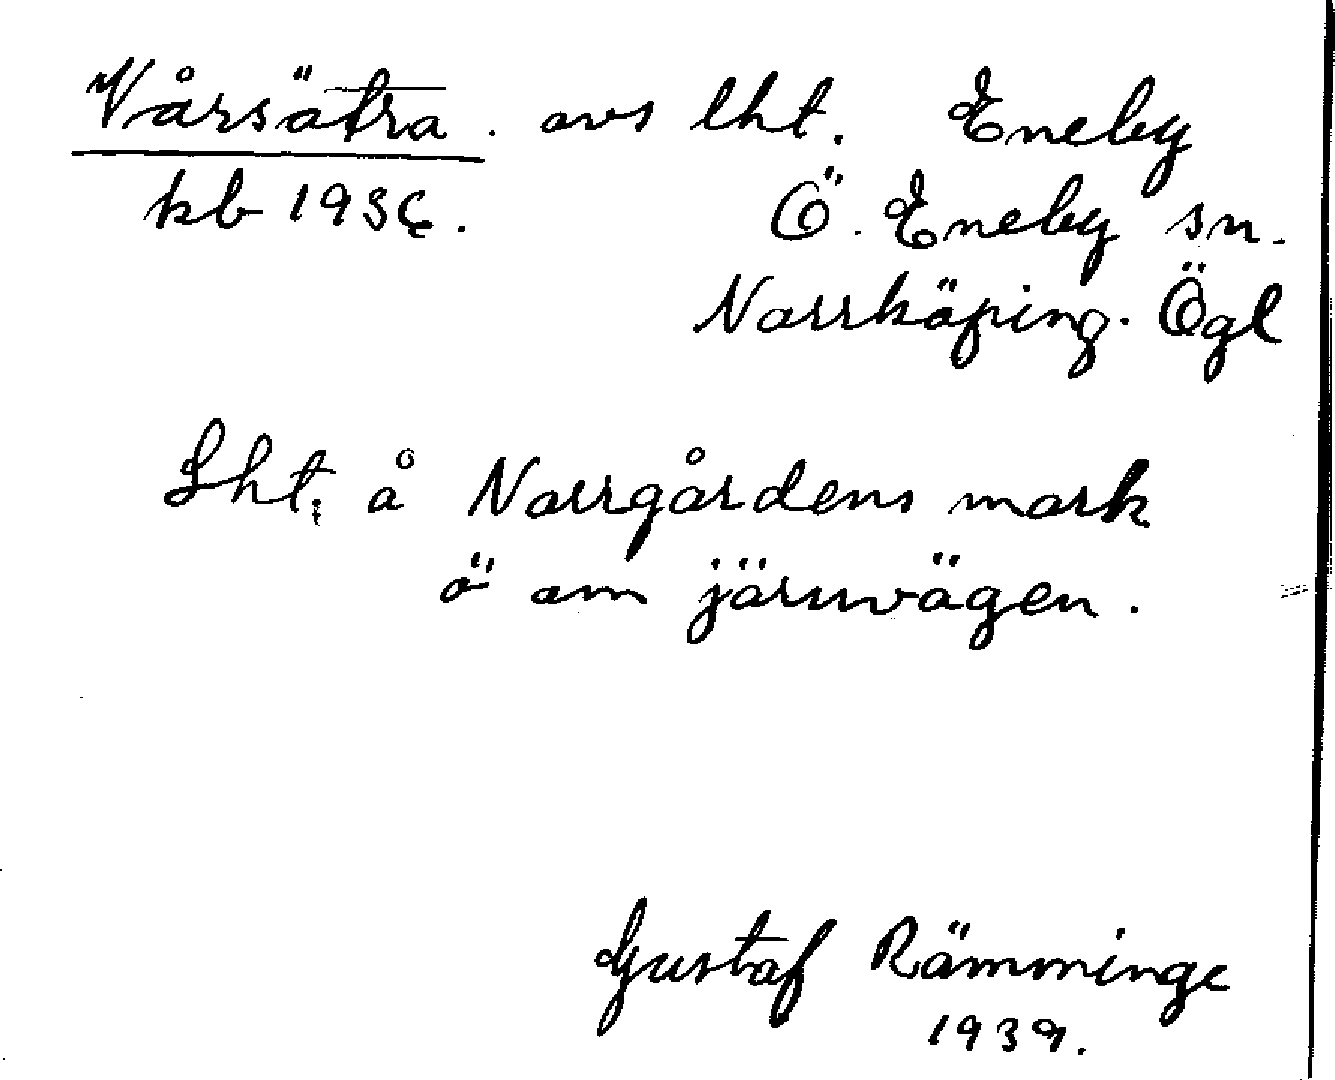 Vårsätra. avs lht. Eneby
kb 1936. Ö. Eneby sn.
Norrköping. Ögl
Lht. å Norrgårdens mark
ö om järnvägen.
Gustaf Rämminge
1939.